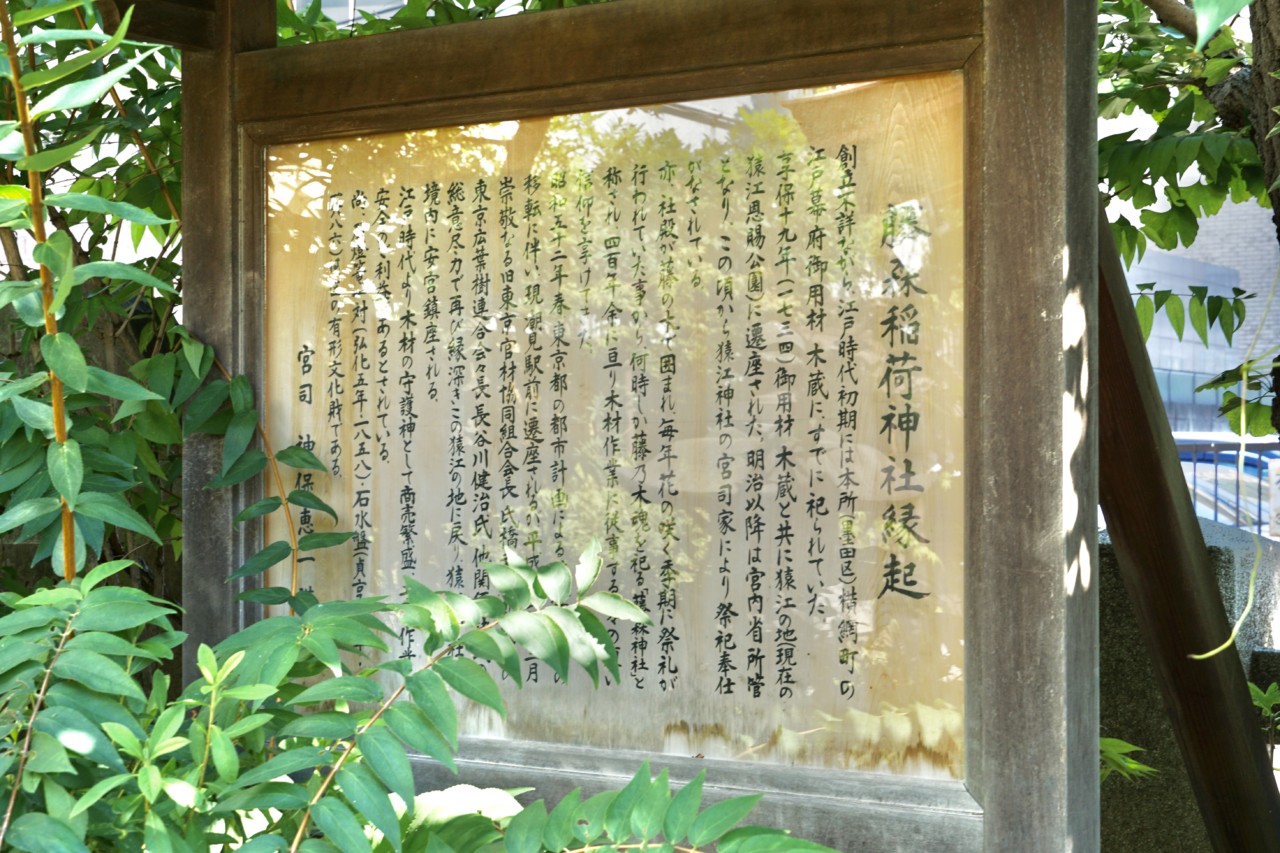 藤森稲荷神社縁起
創立不詳ながら江戸時代初期には本所(墨田区)横網町の
江戸幕府御用材木蔵に、すでに祀られていた。
享保十九年(一七三四)御用材木蔵と共に猿江の地(現在の
猿江恩賜公園)に遷座された。明治以降は宮内省所管
となり、この頃から猿江神社の宮司家により祭祀奉仕
がなされている。
亦、社殿が藤の木で囲まれ、毎年花の咲く季期に祭礼が
行われていた事から、何時しか藤乃木魂を祀る「藤森神社」と
称され四百年余に亘り木材作業に従事する
信仰を享けてきた。
昭和五十二年春、東京都の都市計画による
移転に伴い現潮見駅前に遷座されるが、平成
崇敬なる旧東京官材協同組合会長氏橋
東京広葉樹連合会々長長谷川健治氏、他関係
総意尽力で再び縁深きこの猿江の地に戻り、猿
境内に安宮鎮座される。
江戸時代より木材の守護神として商売繁盛
安全の利益あるとされている。
尚、一対(弘化五年一八五八)・石水盤(貞享
有形文化財である。
宮司 神保恵一